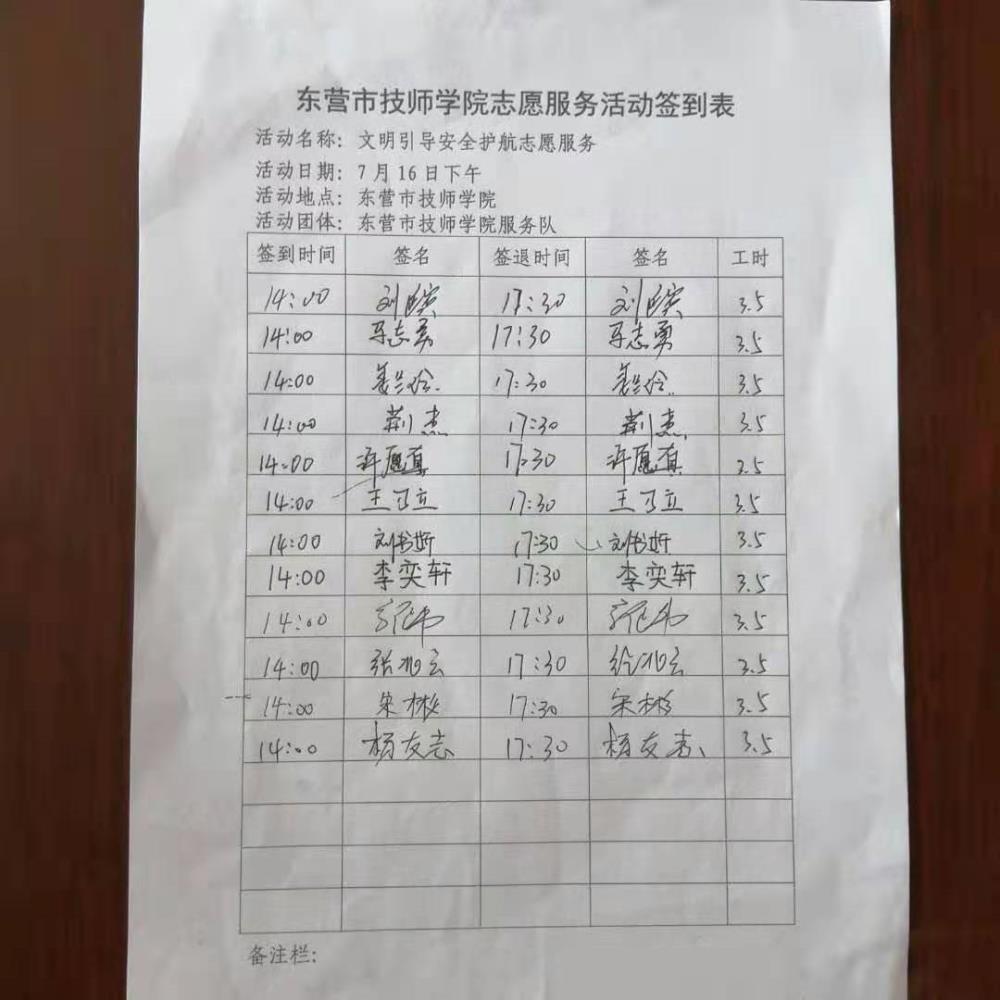 东营市技师学院志愿服务活动签到表
活动名称：文明引导安全护航志愿服务
活动日期：7月16日下午
活动地点：东营市技师学院
活动团体：东营市技师学院服务队
签到时间 签名 签退时间 签名 工时
14:00 17:30 3.5
14:00 马志勇 17:30 马志勇 3.5
14:00 17:30 3.5
14:00 荆杰 17:30 荆杰 3.5
14:00 许愿真 17:30 许愿真 3.5
14:00 王可立 17:30 王可立 3.5
14:00 刘书妍 17:30 刘书妍 3.5
14:00 李奕轩 17:30 李奕轩 3.5
14:00 17:30 3.5
14:00 张兆云 17:30 张兆云 3.5
14:00 宋彬 17:30 宋彬 3.5
14:00 杨友志 17:30 杨友志 3.5
备注栏：